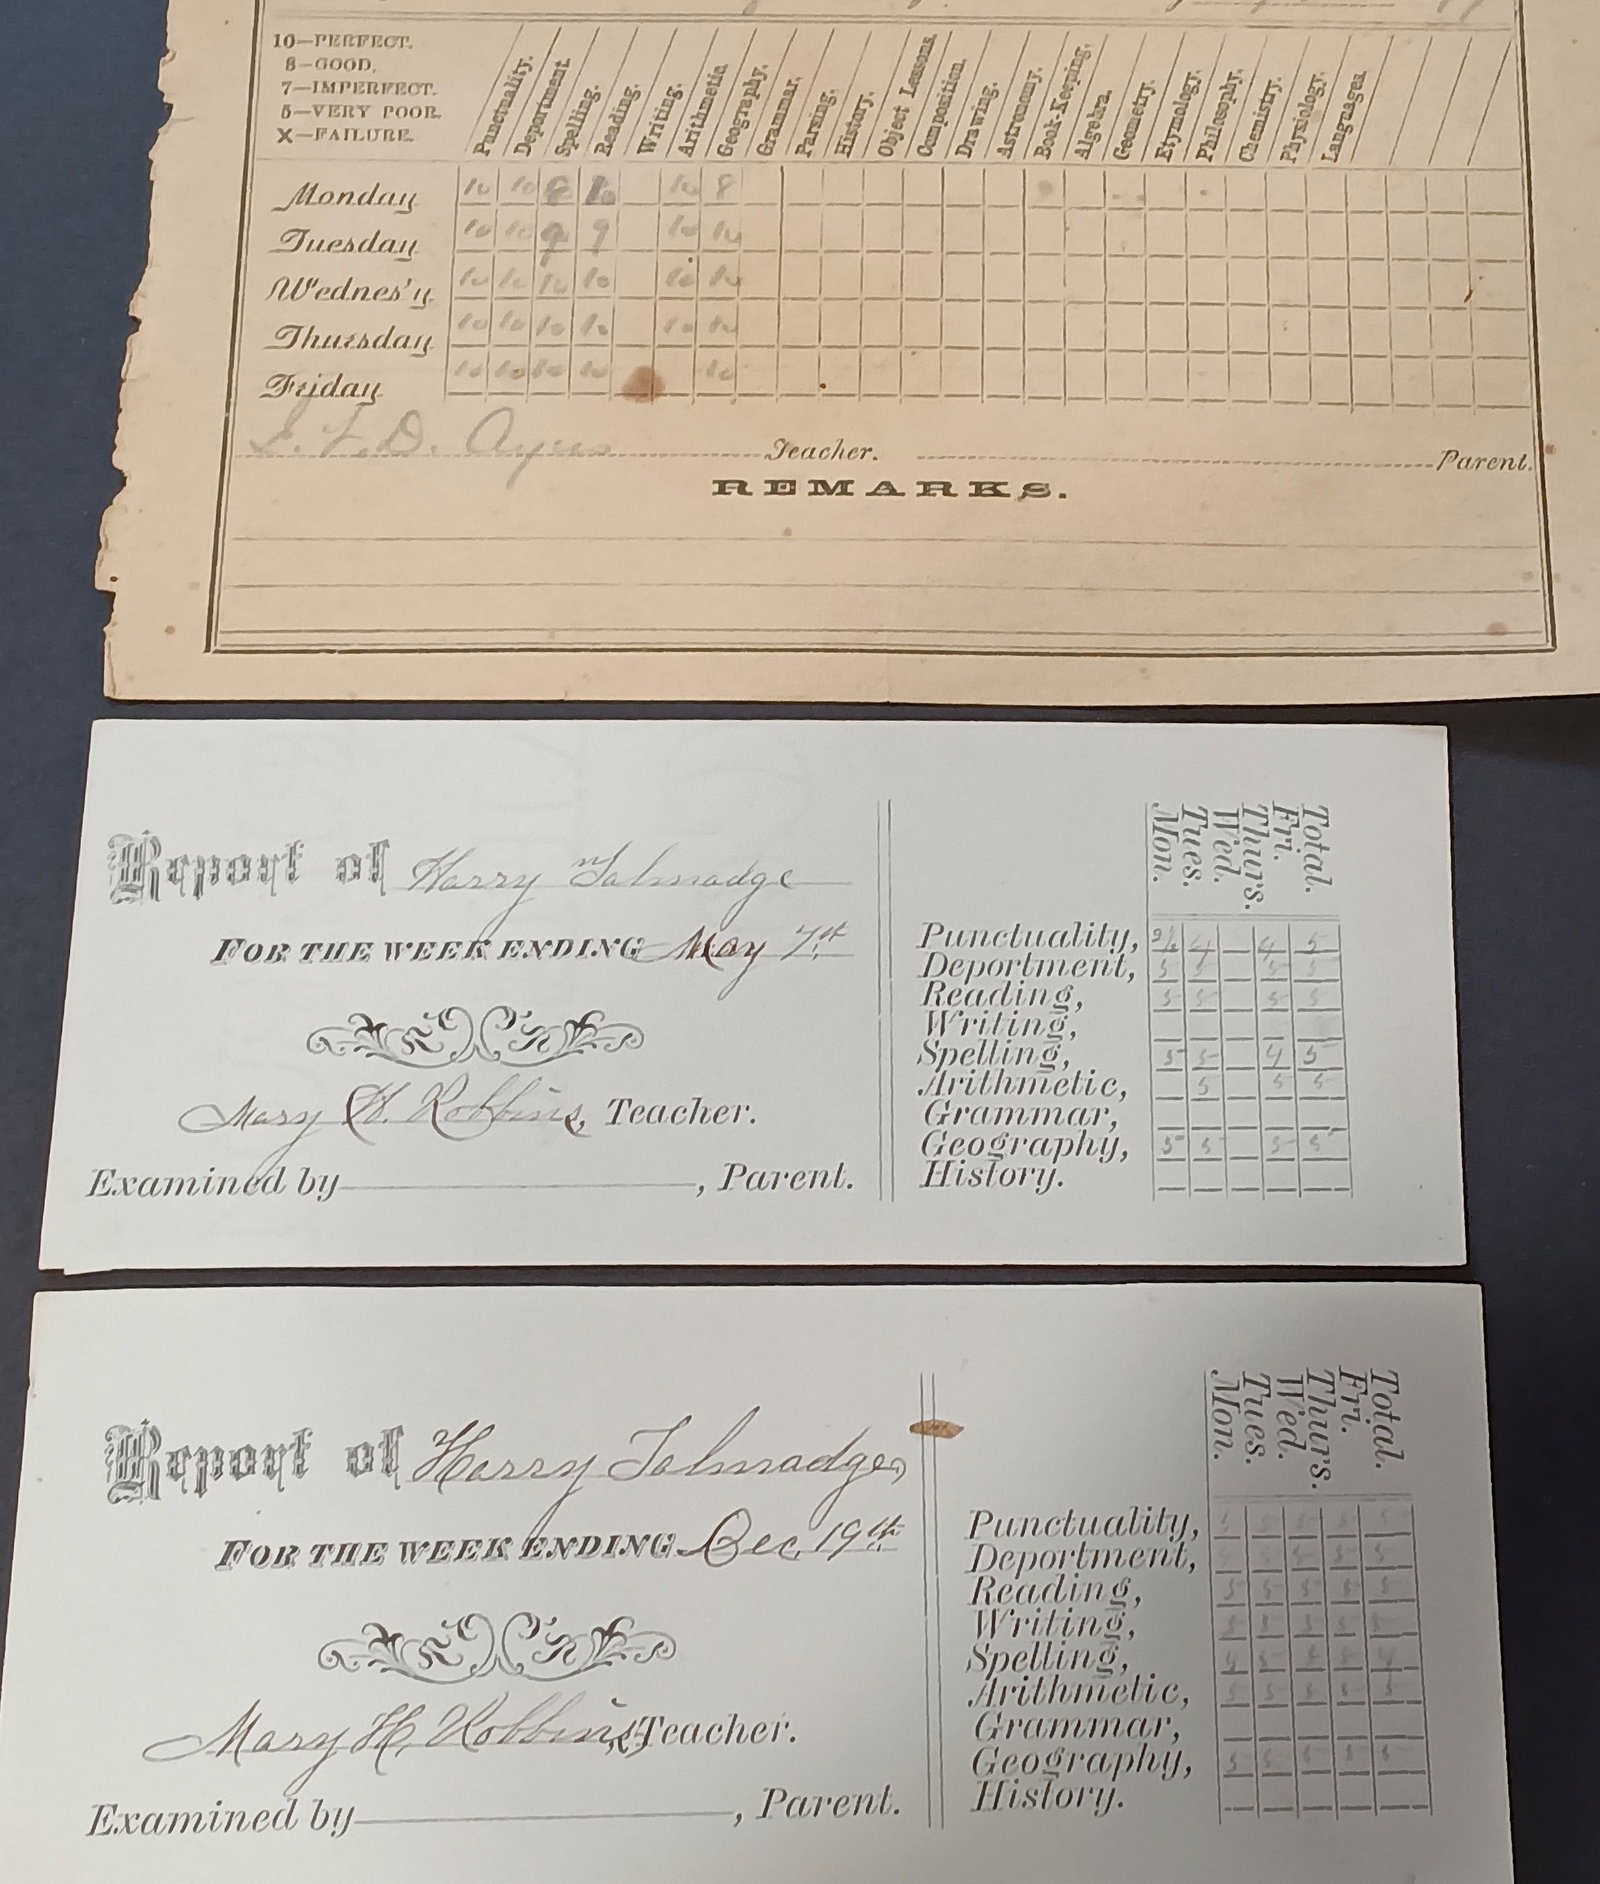 10—PERFECT.
8—GOOD.
7—IMPERFECT.
5—VERY POOR.
X—FAILURE.
Punctuality. Deportment. Spelling. Reading. Writing. Arithmetic. Geography. Grammar. Parsing. History. Object Lessons. Composition. Drawing. Astronomy. Book-Keeping. Algebra. Geometry. Etymology. Philosophy. Chemistry. Physiology. Languages.
Monday 10 10 10 10 8
Tuesday 10 10 9 9 10 10
Wednes'y 10 10 10 10 10 10
Thursday 10 10 10 10 10 10
Friday 10 10 10 10 10
D. Ayres Teacher. Parent.
REMARKS.
Report of Harry Talmadge
FOR THE WEEK ENDING May 7th
Mary H. Robbins, Teacher.
Examined by , Parent.
Mon. Tues. Wed. Thurs. Fri. Total.
Punctuality, 4 4 5
Deportment, 5 5 5 5
Reading, 5 5 5 5
Writing,
Spelling, 5 5 4 5
Arithmetic, 5 5 5
Grammar,
Geography, 5 5 5 5
History.
Report of Harry Talmadge,
FOR THE WEEK ENDING Dec. 19th
Mary H. Robbins, Teacher.
Examined by , Parent.
Mon. Tues. Wed. Thurs. Fri. Total.
Punctuality, 5 5 5 5 5
Deportment, 5 5 5
Reading, 5 5 5 5 5
Writing, 5 5 5 5 5
Spelling,
Arithmetic, 5 5 5 5 5
Grammar,
Geography, 5 5 5 5 5
History.